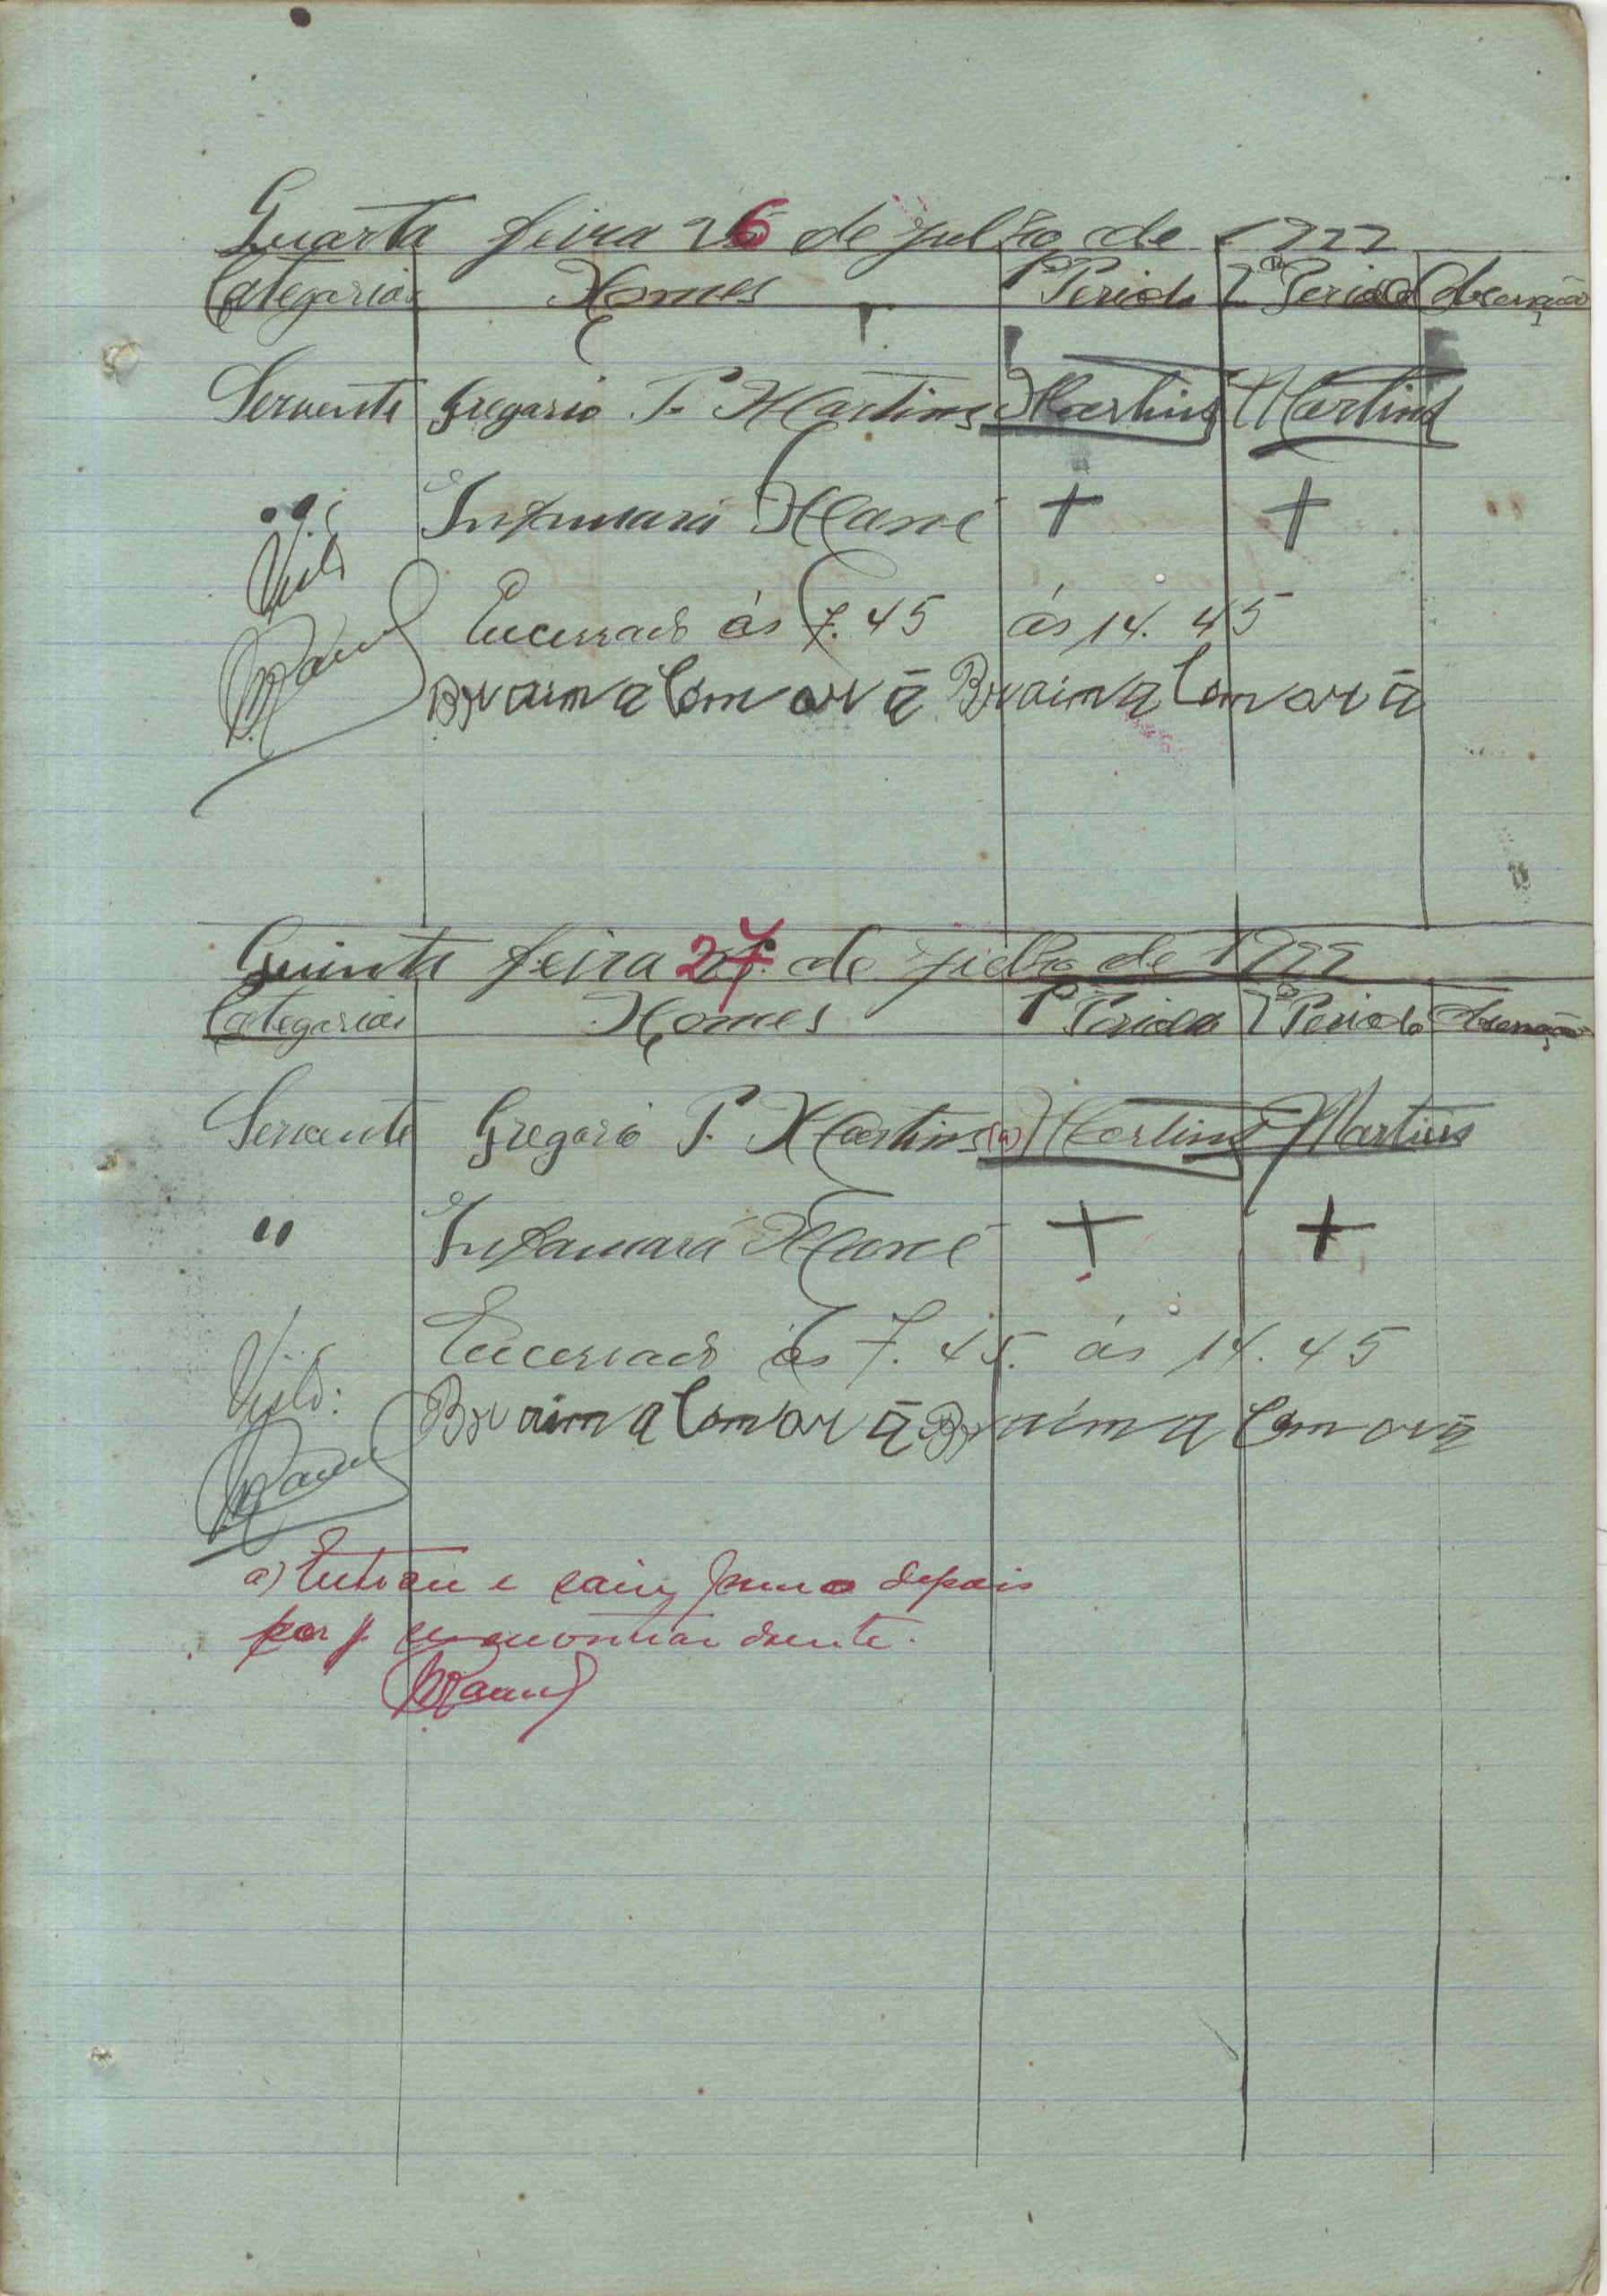 Quarta feira 26 de julho de 1922
Categorias Nomes 1º Periodo 2º Periodo Observação
Servente Gregorio P. Martins Martins Martins
" Mané + +
Visto
Encerrado ás 7.45 ás 14.45
Braima Camará Braima Camará
Quinta feira 27 de julho de 1922
Categorias Nomes 1º Periodo 2º Periodo Observação
Servente Gregorio P. Martins (a) Martins Martins
" Infamará Mané + +
Encerrado ás 7.45. ás 14.45
Visto:
Braima Camará Braima Camará
a) Entrou e saiu pouco depois
por encontrar doente.